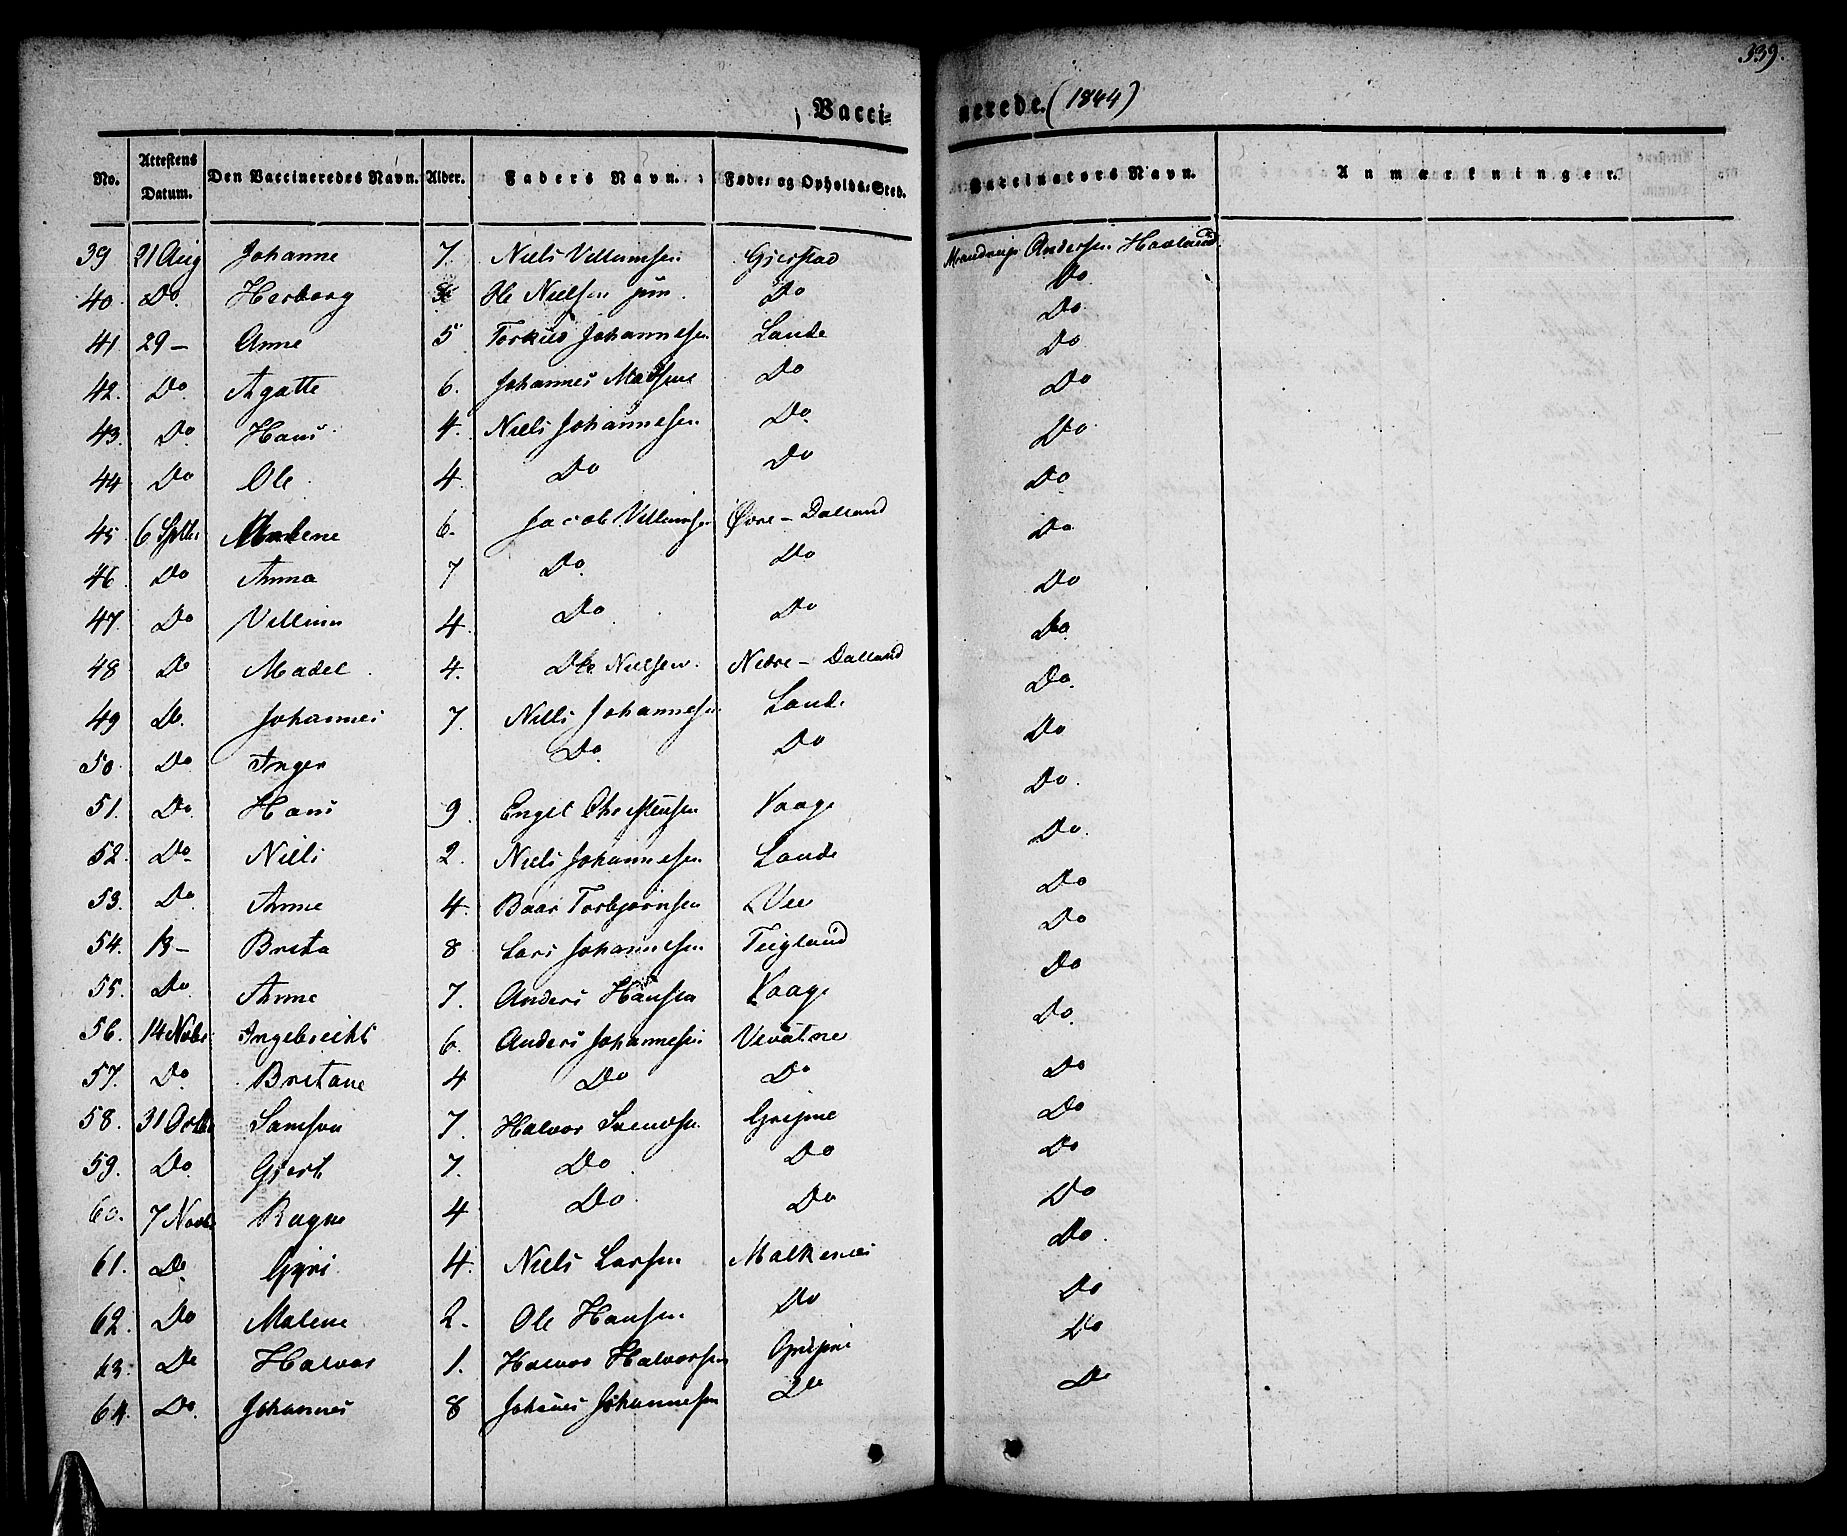 339.
Vacci= nerede. (1844)
No. Attestens Datum. Den Vaccineredes Navn. Alder. Faders Navn. Føde= og Opholds=Sted. Vaccinators Navn. Anmærkninger.
39 21 Aug Johanne 7. Niels Villumsen Gjerstad Andersen Haaland
40. Do. Herborg Ole Nielsen jun. Do Do
41 29 — Anne 5 Torkild Johannesen Lande Do
42. Do. Agatte 6. Johannes Madsen Do Do
43. Do. Hans 4. Niels Johannesen Do. Do
44 Do Ole. 4. Do Do Do.
45 6 Septbr Malene 6. Jacob Villumsen Øvre – Dalland Do
46. Do Anna 7 Do. Do Do.
47. Do Villum 4. Do. Do Do
48 Do Madel 4. Ole Nielsen. Nedre – Dalland Do.
49 Do. Johannes 7. Niels Johannesen Lande Do.
50 Do. Inger Do. Do Do
51. Do. Hans 9. Engel Christensen Vaage Do.
52. Do. Niels 2. Niels Johannesen Lande Do.
53. Do. Anne 4. Baar Torbjørnsen Vee Do
54. 13 – Brita 8 Lars Johannesen Teigland Do
55. Do. Anne 7. Anders Hansen Vaage Do
56. 14 Novbr Ingebricht 6. Anders Johannesen Vevatne Do.
57. Do. Britane 4 Do Do Do
58. 31 Octbr Samson 7. Halvor Svendsen Gripne Do
59. Do. Gjert 7. Do Do Do
60. 7 Novbr Ragne 4 Do. Do Do
61. Do. Gyri 4. Niels Larsen Malkenes Do.
62. Do Malene 2. Ole Hansen Do Do
63. Do Halvor 1. Halvor Halvorsen Gripne Do
64. Do. Johannes 8 Johannesen Do Do